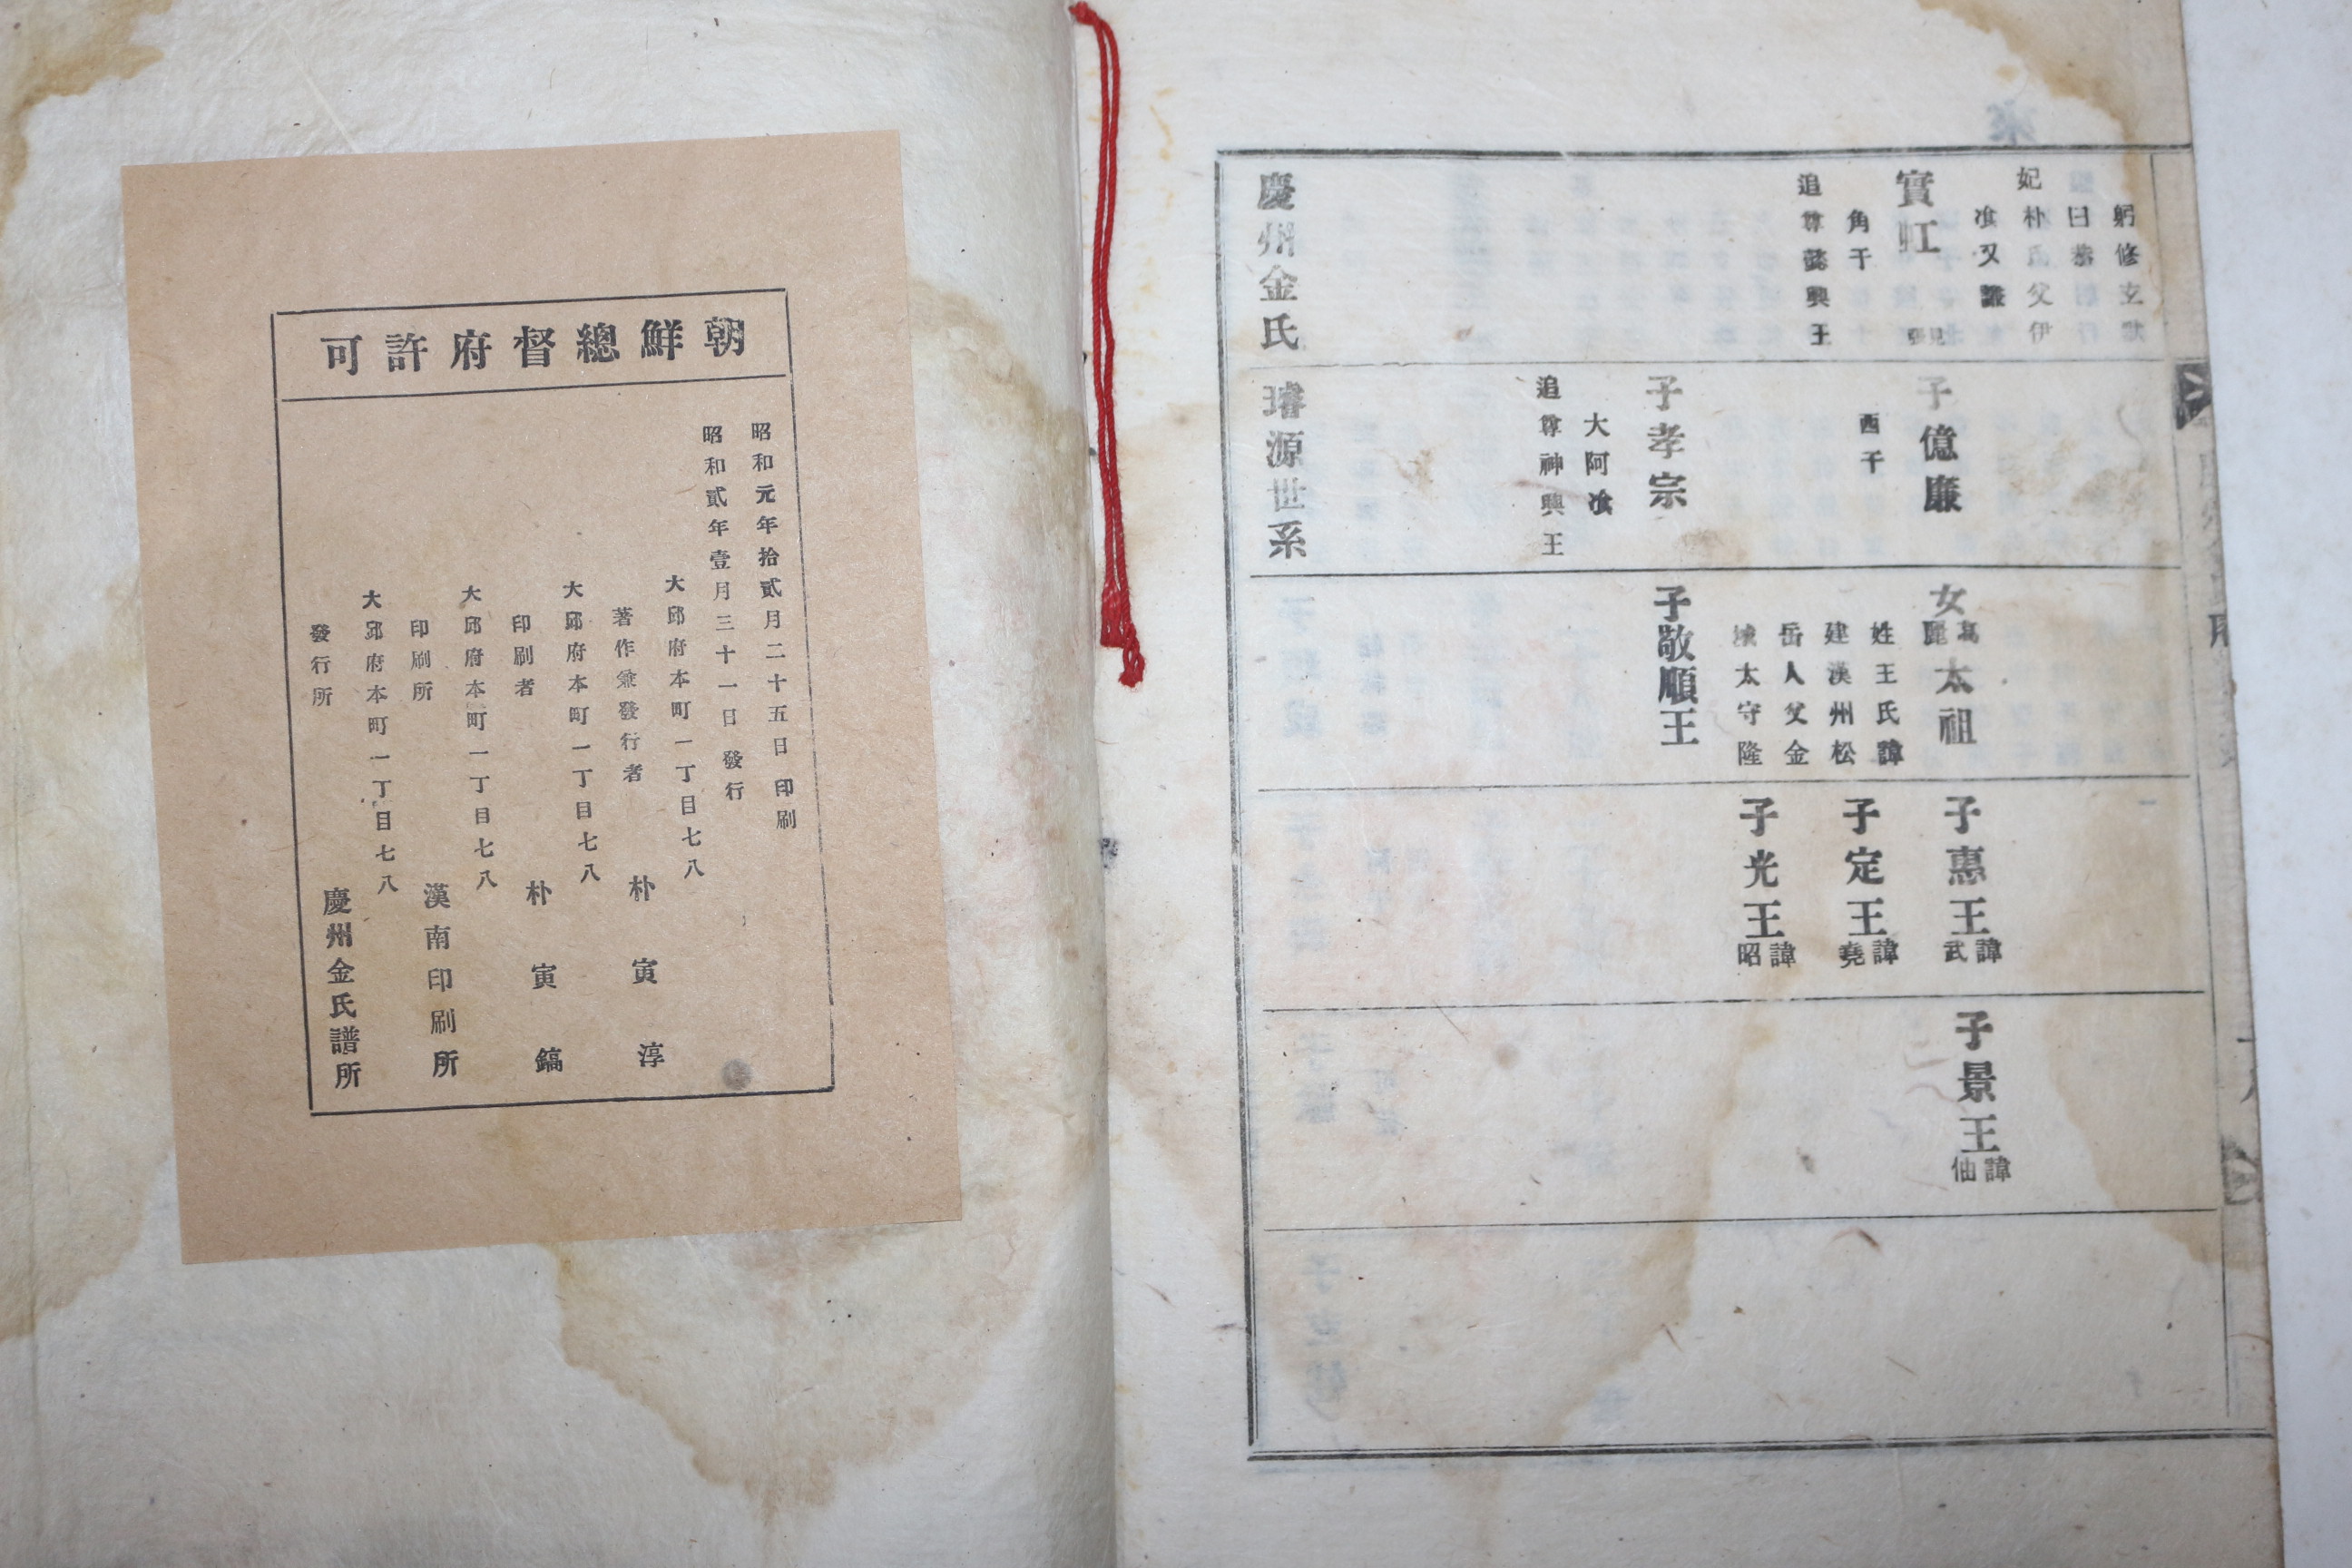 朝鮮總督府許可
昭和元年拾貳月二十五日 印刷
昭和貳年壹月三十一日 發行
大邱府本町一丁目七八
著作兼發行者 朴寅淳
大邱府本町一丁目七八
印刷者 朴寅鎬
大邱府本町一丁目七八
印刷所 漢南印刷所
大邱府本町一丁目七八
發行所 慶州金氏譜所
躬修玄默
曰恭
妃朴氏父伊
飡又讓
實虹
見張
角干
追尊懿興王
子億廉
西干
子孝宗
大阿飡
追尊神興王
女高麗太祖
姓王氏諱
建漢州松
岳人父金
城太守隆
子敬順王
子惠王諱武
子定王諱堯
子光王諱昭
子景王諱伷
慶州金氏 璿源世系